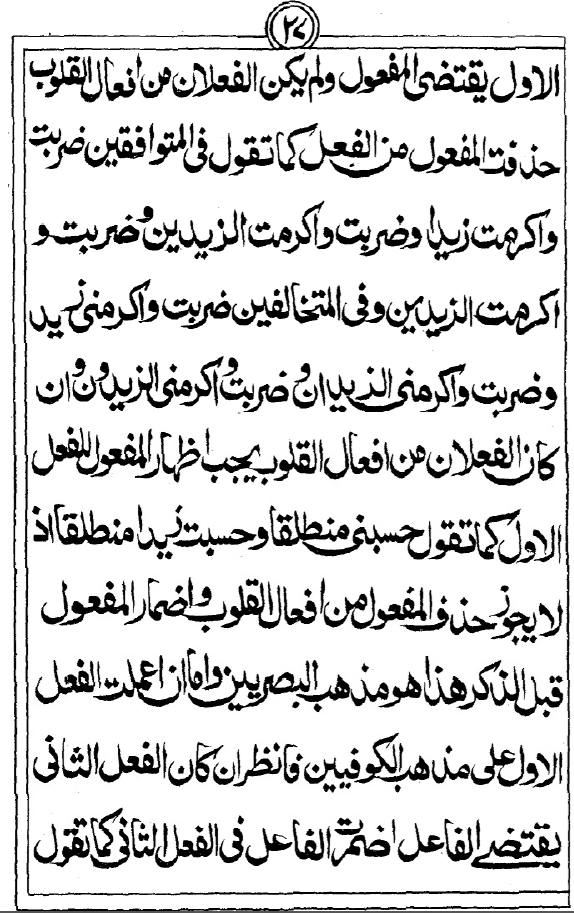 ٢٧
الاول يقتضى المفعول ولم يكن الفعلان من افعال القلوب
حذفت المفعول من الفعل كما تقول فى المتوافقين ضربت
واكرمت زيدا وضربت واكرمت الزيدين وضربت و
اكرمت الزيدين وفى المتخالفين ضربت واكرمنى زيد
وضربت واكرمنى الزيدان وضربت واكرمنى الزيدون وان
كان الفعلان من افعال القلوب يجب اظهار المفعول للفعل
الاول كما تقول حسبنى منطلقا وحسبت زيدا منطلقا اذ
لا يجوز حذف المفعول من افعال القلوب واضمار المفعول
قبل الذكر هذا هو مذهب البصريين واما ان اعملت الفعل
الاول على مذهب الكوفيين فانظر ان كان الفعل الثانى
يقتضى الفاعل اضمرت الفاعل فى الفعل الثانى كما تقول